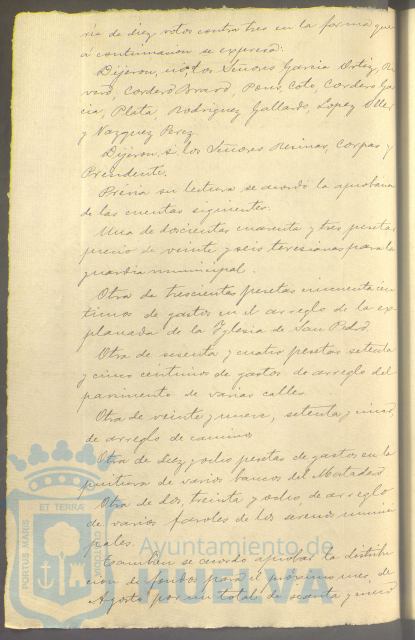 ria de diez votos contra tres en la forma que
á continuacion se expresa:
Dijeron, no, los Señores Garcia Ortiz, Ri
vero, Cordero Bravo, Pons, Coto, Cordero Gar
cia, Plata, Rodriguez Gallardo, Lopez Oller
y Vazquez Perez.
Dijeron, si, los Señores Resinas, Corpas y
Presidente.
Prévia su lectura se acordó la aprobacion
de las cuentas siguientes.
Una de doscientas cuarenta y tres pesetas
precio de veinte y seis teresianas para la
guardia municipal.
Otra de trescientas pesetas cincuenta cen
timos de gastos en el arreglo de la ex
planada de la Iglesia de San Pedro.
Otra de sesenta y cuatro pesetas setenta
y cinco centimos de gastos de arreglo del
pavimento de varias calles.
Otra de veinte y nueve, setenta y cinco,
de arreglo de caminos
Otra de diez y ocho pesetas de gastos en la
pintura de varios bancos del Matadero
Otra de dos, treinta y ocho, de arreglo
de varios faroles de los serenos munici
pales.
Tambien se acordó aprobar la distribu
cion de fondos para el próximo mes de
Agosto por un total de sesenta y nueve
PORTUS MARIS ET TERRAE CUSTODIA
Ayuntamiento de
HUELVA